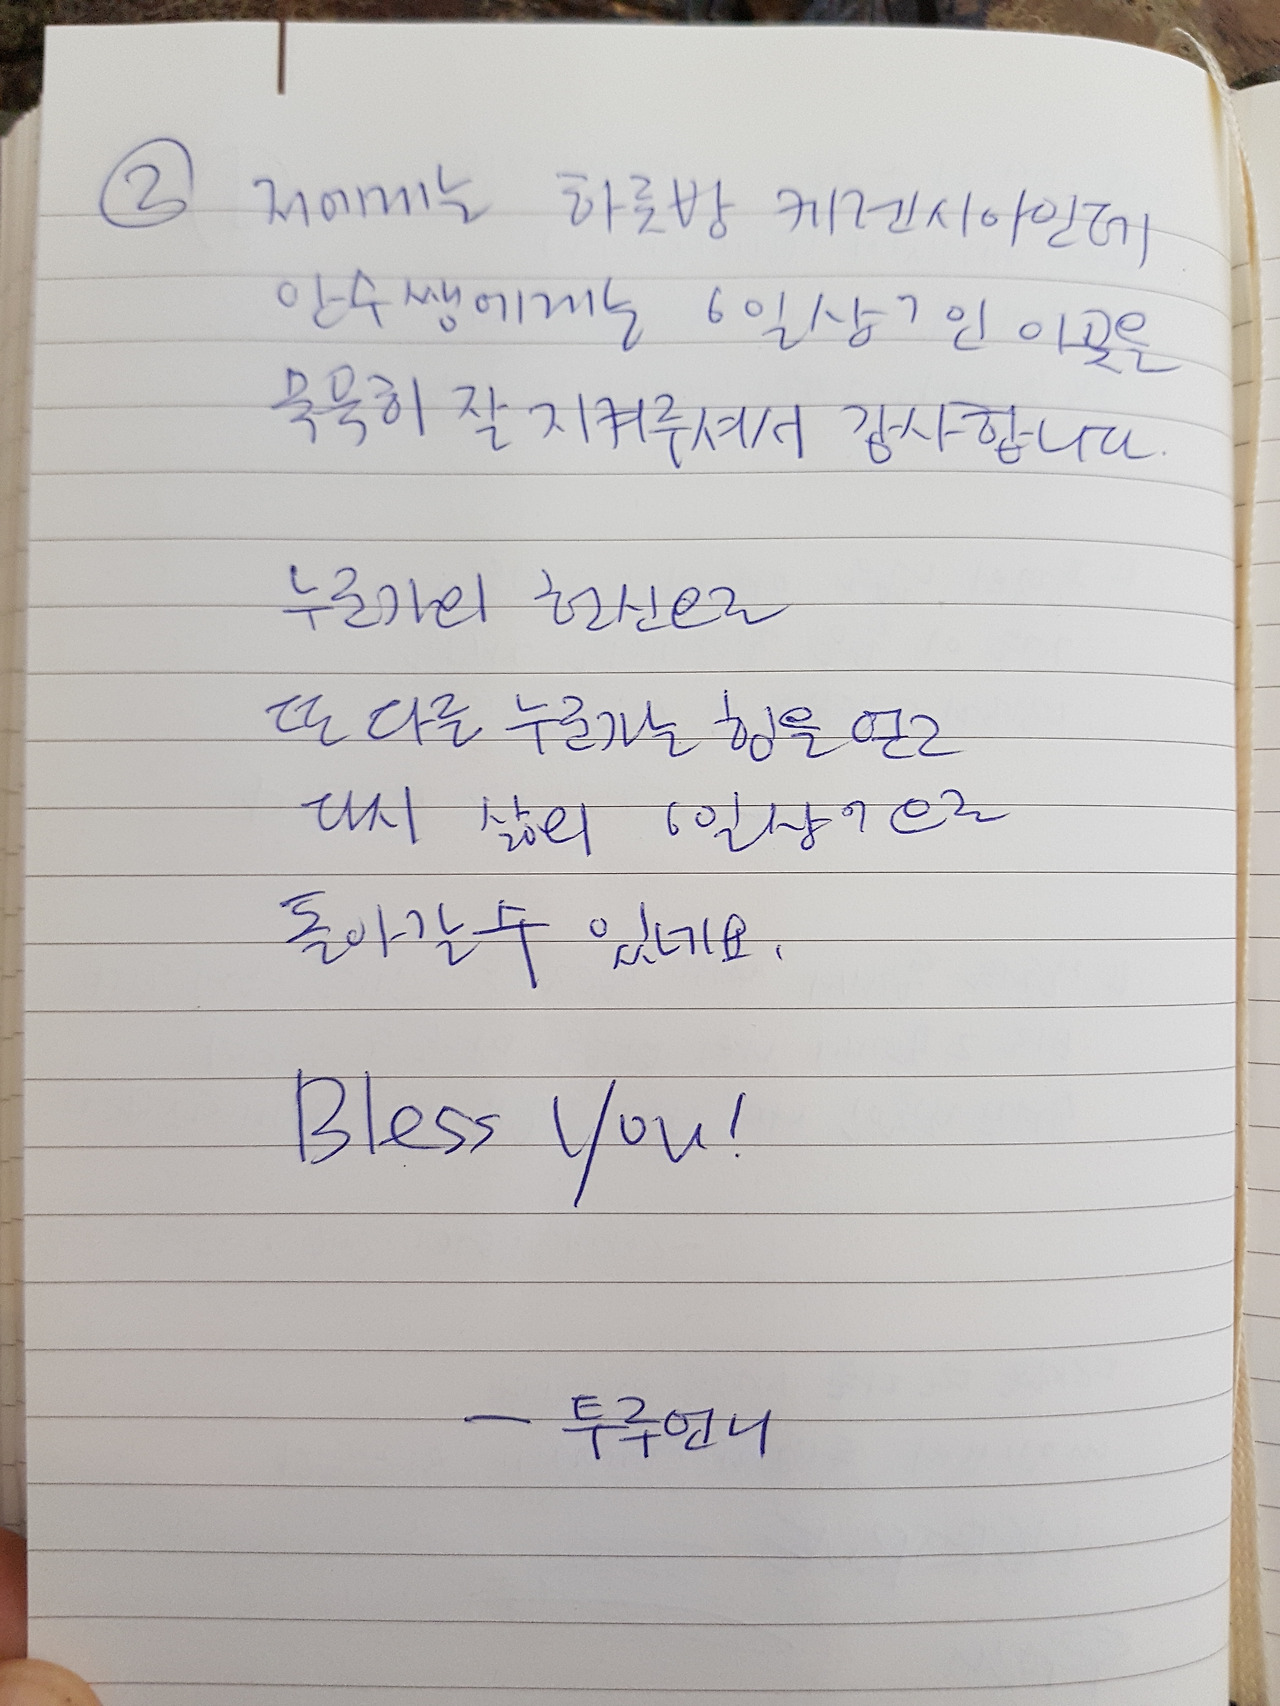 ② 저에게는 하룻밤 케렌시아인데
안수쌤에게는 '일상'인 이곳을
묵묵히 잘 지켜주셔서 감사합니다.
누군가의 헌신으로
또 다른 누군가는 힘을 얻고
다시 삶의 '일상'으로
돌아갈 수 있네요.
Bless you!
- 투루언니